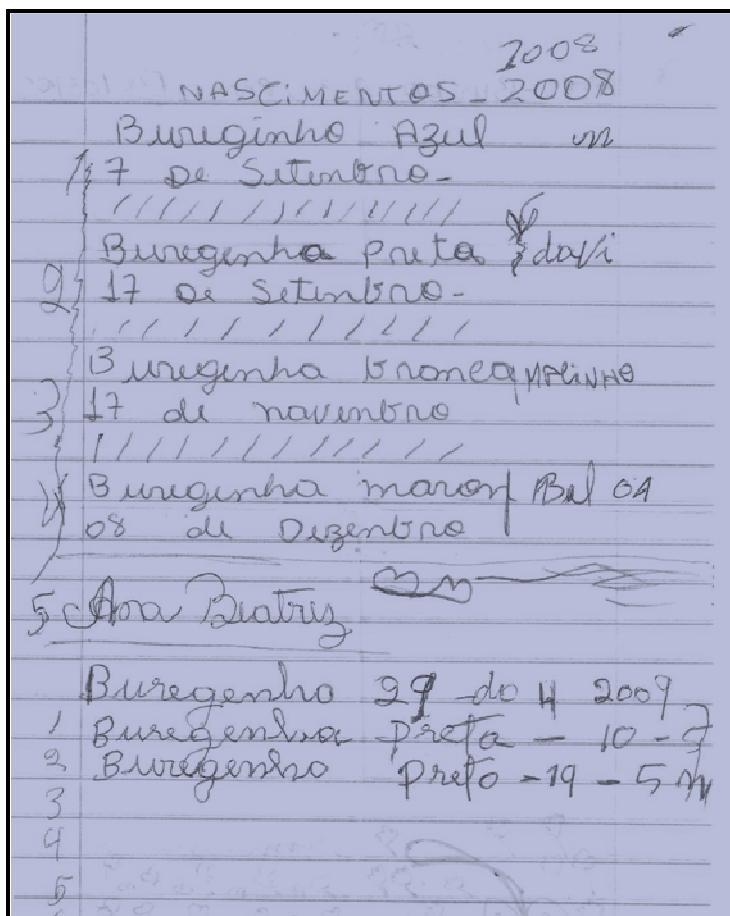 2008
NASCIMENTOS - 2008
Bureginho Azul m
1 7 De Setenbro -
Bureginha preta davi
2 17 De Setenbro -
Bureginha branca
3 17 de novenbro
4 Bureginha maron Bel OA
08 de Dezenbro
5 Ana Beatriz
Buregenho 29 do 4 2009
1 Buregenha preta - 10 -
2 Buregenho preto - 19 - 5 m
3
4
5